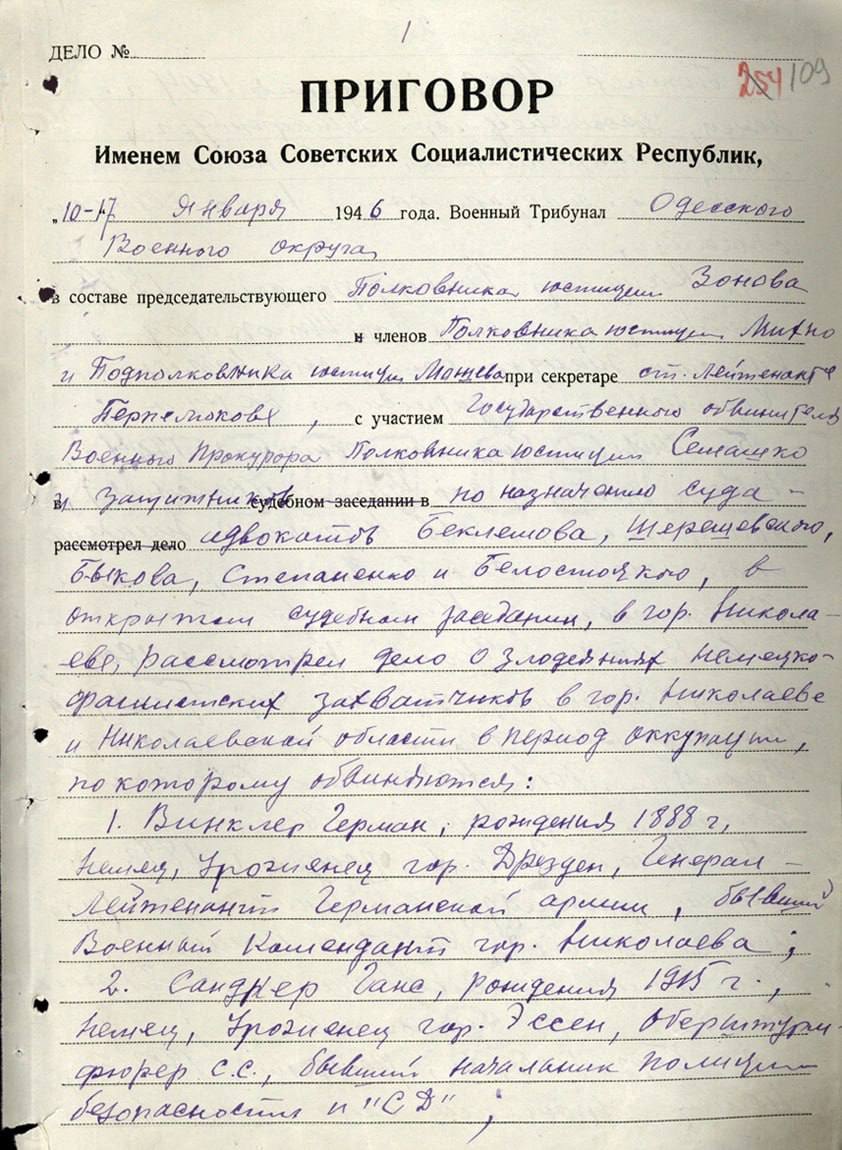 1
ДЕЛО №
254 109
ПРИГОВОР
Именем Союза Советских Социалистических Республик,
„10-17 Января 1946 года. Военный Трибунал Одесского
Военного округа
в составе председательствующего Полковника юстиции Зонова
и членов Полковника юстиции Михно
и Подполковника юстиции при секретаре ст. Лейтенанте
, с участием Государственного обвинителя
Военного Прокурора Полковника юстиции Семашко
и защитников судебном заседании в по назначению суда –
рассмотрел дело адвокатов Беклемова, Шерешевского,
Быкова, Степаненко и Белостоцкого, в
открытом судебном заседании, в гор. Никола-
еве, рассмотрел дело о злодеяниях немецко-
фашистских захватчиков в гор. Николаеве
и Николаевской области в период оккупации,
по которому обвиняются:
1. Винклер Герман, рождения 1888 г,
немец, урожженец гор. Дрезден, Генерал –
Лейтенант Германской армии, бывший
Военный Комендант гор. Николаева;
2. Санднер Ганс, рождения 1915 г.,
немец, уроженец гор. Эссен, Оберштурм-
фюрер с.с., бывший начальник полиции
безопасности и "СД";